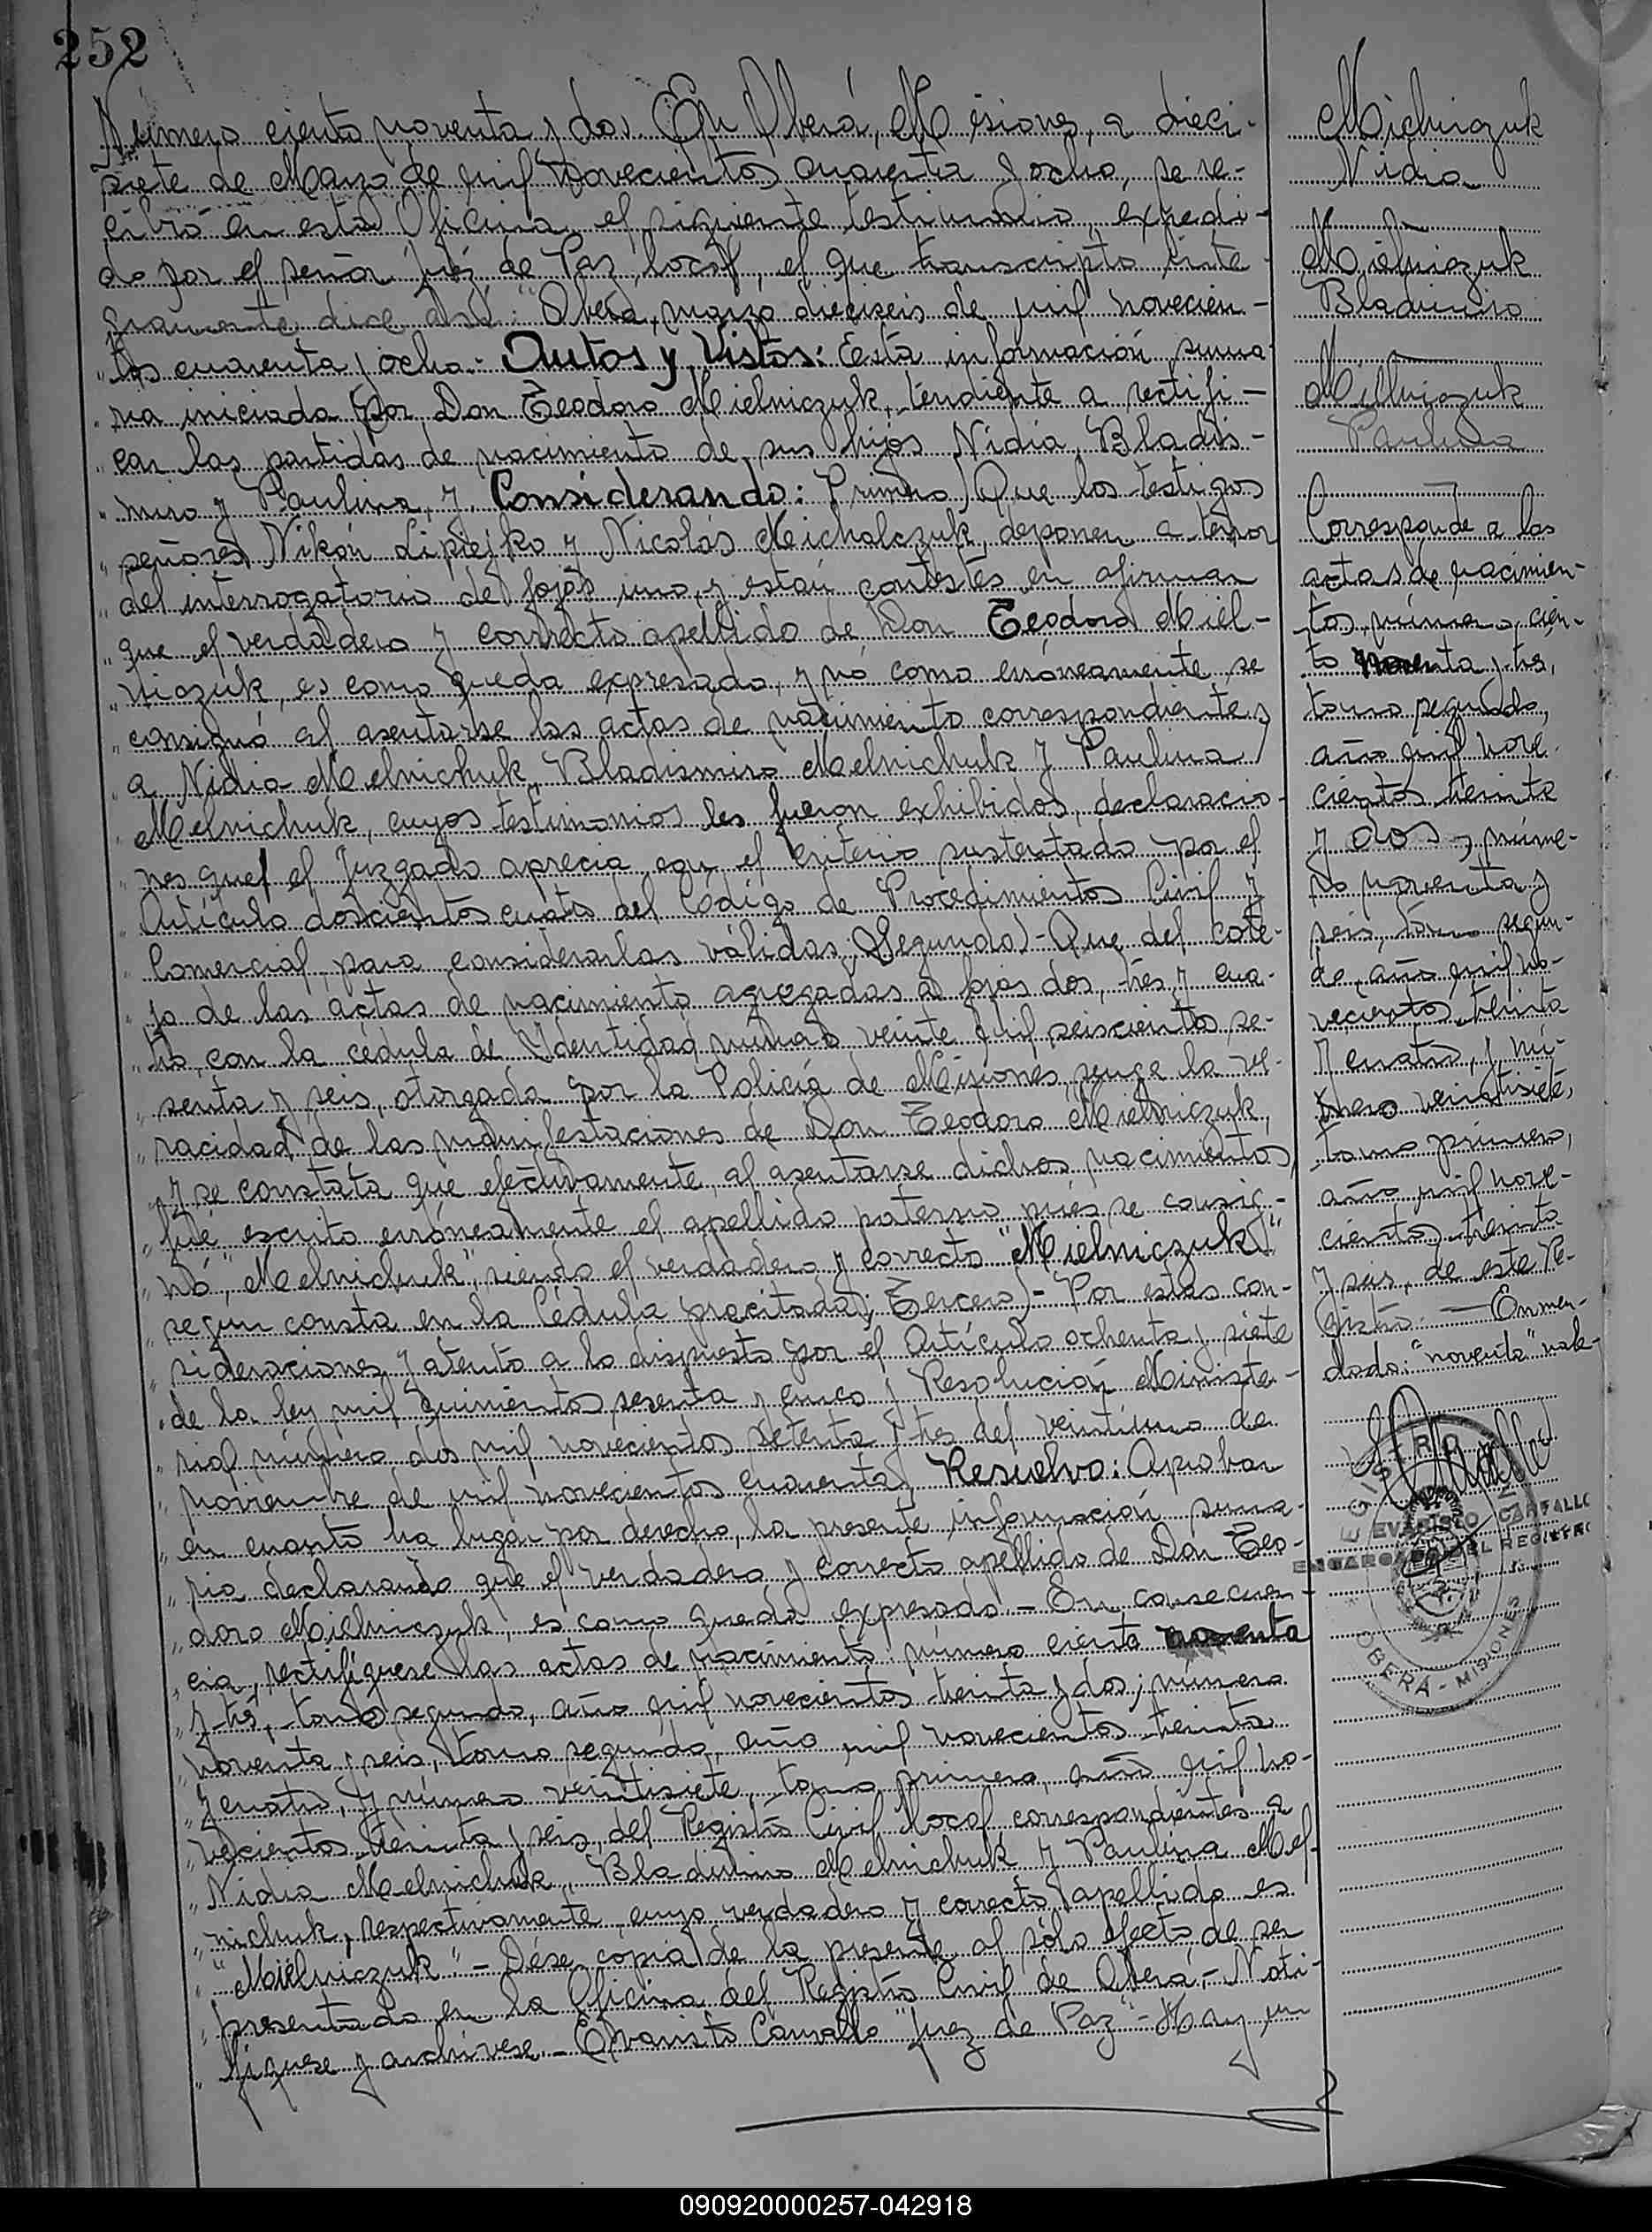 252
Número ciento noventa y dos. En Oberá, Misiones, a dieci-
siete de Marzo de mil novecientos cuarenta y ocho, se re-
cibió en esta Oficina el siguiente testimonio, expedi-
do por el señor juez de Paz local, el que transcripto ínte-
gramente dice así: "Oberá, marzo dieciseis de mil novecien-
"tos cuarenta y ocho.- Autos y Vistos: Esta información suma-
"ria iniciada por Don Teodoro Mielniczuk, tendiente a rectifi-
"car las partidas de nacimiento de sus hijos Nidia, Bladis-
"miro y Paulina, y, Considerando: Primero) Que los testigos
"señores Nikón Lipiejko y Nicolás Michalczuk, deponen a tenor
"del interrogatorio de fojas uno, y están contestes en afirmar
"que el verdadero y correcto apellido de Don Teodoro Miel-
"niczuk, es como queda expresado, y nó como erróneamente se
"consignó al asentarse las actas de nacimiento correspondientes
"a Nidia Melnichuk, Bladismiro Melnichuk y Paulina
"Melnichuk, cuyos testimonios les fueron exhibidos, declaracio-
"nes que el Juzgado aprecia con el criterio sustentado por el
"Artículo doscientos cuatro del Código de Procedimientos Civil y
"Comercial, para considerarlas válidas; Segundo)- Que del cote-
"jo de las actas de nacimiento agregadas a fojas dos, tres y cua-
"tro, con la cédula de Identidad número veinte mil seiscientos se-
"senta y seis, otorgada por la Policía de Misiones, surge la ve-
"racidad de las manifestaciones de Don Teodoro Mielniczuk,
"y se constata que efectivamente, al asentarse dichos nacimientos,
"fué escrito erróneamente el apellido paterno pués se consig-
"nó "Melnichuk", siendo el verdadero y correcto "Mielniczuk"
"segun consta en la Cédula precitada; Tercero)- Por estas con-
"sideraciones y atento a lo dispuesto por el Artículo ochenta y siete
"de la ley mil quinientos sesenta y cinco y Resolución Ministe-
"rial número dos mil novecientos setenta y tres del veintiuno de
"noviembre de mil novecientos cuarenta, Resuelvo: Aprobar
"en cuanto ha lugar por derecho, la presente información suma-
"ria declarando que el verdadero y correcto apellido de Don Teo-
"doro Mielniczuk, es como queda expresado.- En consecuen-
"cia, rectifíquese las actas de nacimiento: número ciento noventa
"y tres, tomo segundo, año mil novecientos treinta y dos; número
"noventa y seis, tomo segundo, año mil novecientos treinta
"y cuatro, y número veintisiete, tomo primero, año mil no-
"vecientos treinta y seis, del Registro Civil local correspondientes a
"Nidia Melnichuk, Bladimiro Melnichuk y Paulina Mel-
"nichuk, respectivamente, cuyo verdadero y correcto apellido es
"Mielniczuk".- Dése copia de la presente al sólo efecto de ser
"presentado en la Oficina del Registro Civil de Oberá.- Noti-
"fíquese y archívese.- Evaristo Carvallo "juez de Paz".- Hay un
Mielniczuk
Nidia
Mielniczuk
Bladimiro
Mielniczuk
Paulina
Corresponde a las
actas de nacimien-
tos, número cien-
to noventa y tres,
tomo segundo,
año mil nove-
cientos treinta
y dos, núme-
ro noventa y
seis, tomo segun-
do, año mil no-
vecientos treinta
y cuatro, y nú-
mero veintisiete,
tomo primero,
año mil nove-
cientos treinta
y seis, de este Re-
gistro. — Enmen-
dado: "noventa" vale.-
REGISTRO CIVIL
EVARISTO CARVALLO
ENCARGADO DEL REGISTRO
OBERÁ - MISIONES
090920000257-042918